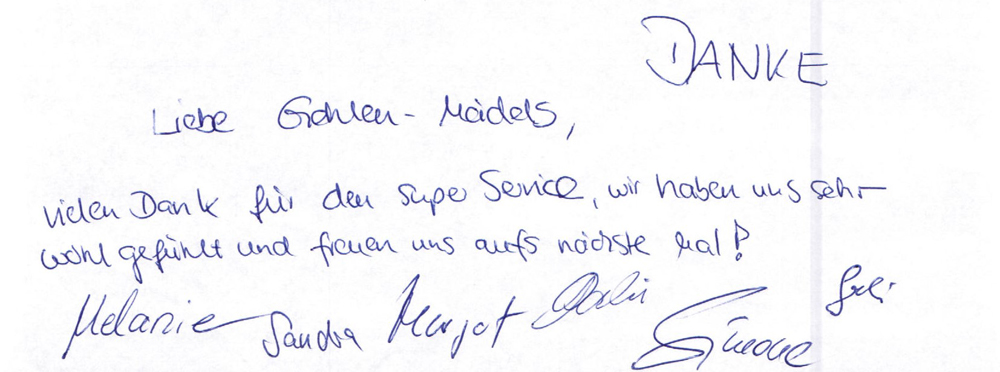 DANKE
Liebe Mädels,
vielen Dank für den super Service, wir haben uns sehr
wohl gefühlt und freuen uns aufs nächste Mal!
Melanie Sandra Margot Simone